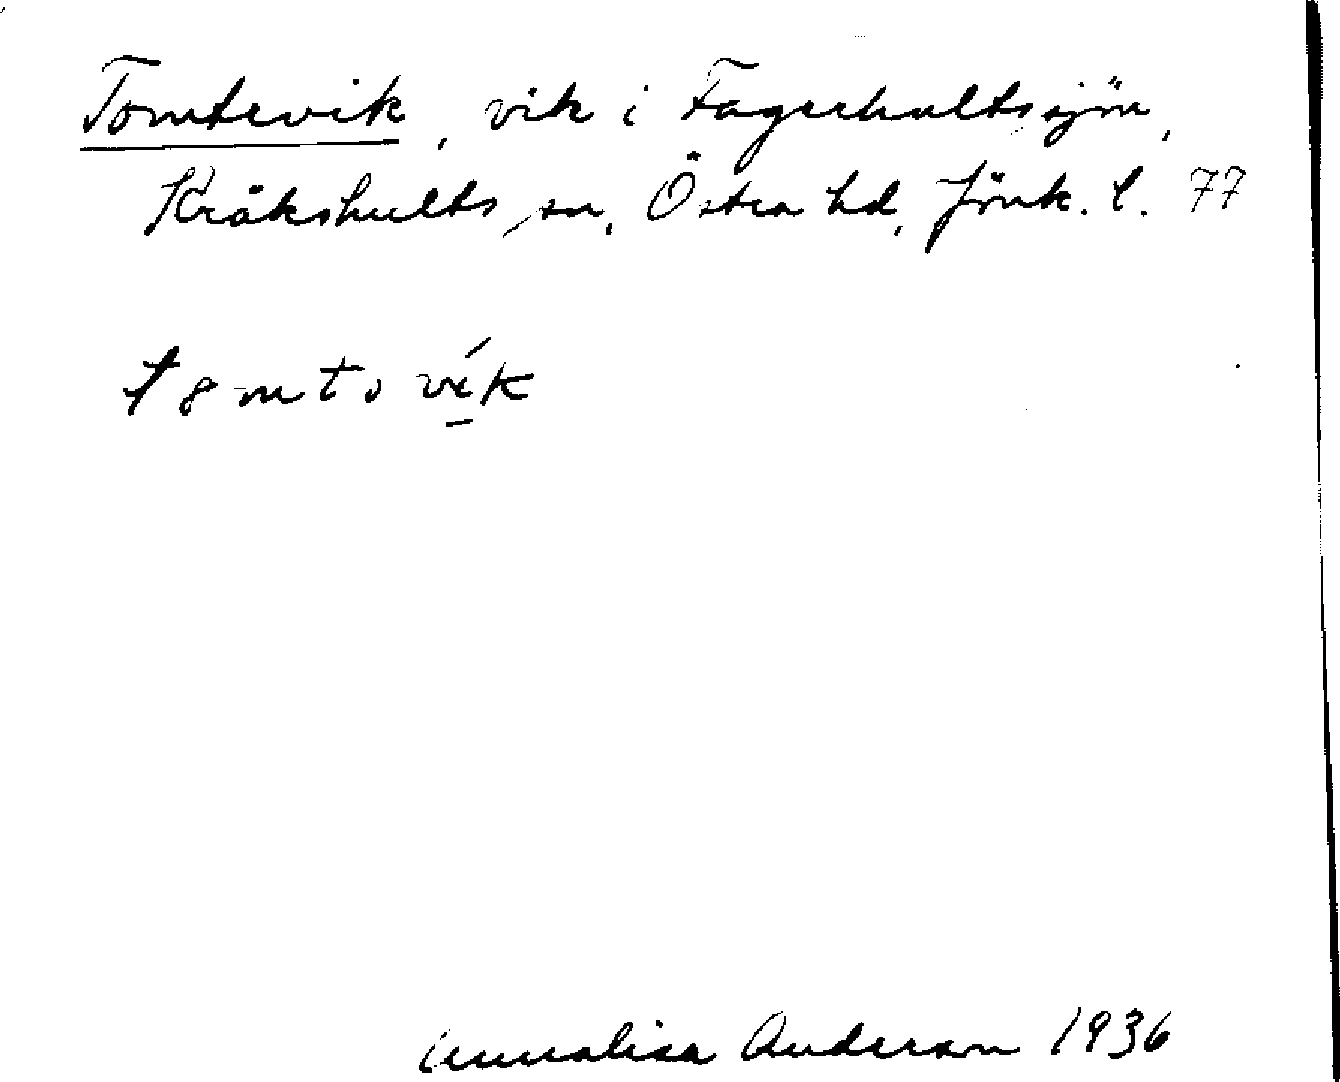 Tomtevik, vik i Fagerhultssjön,
Kråkshults sn, Östra hd, Jönk. l. 77
Annalisa Anderson 1936